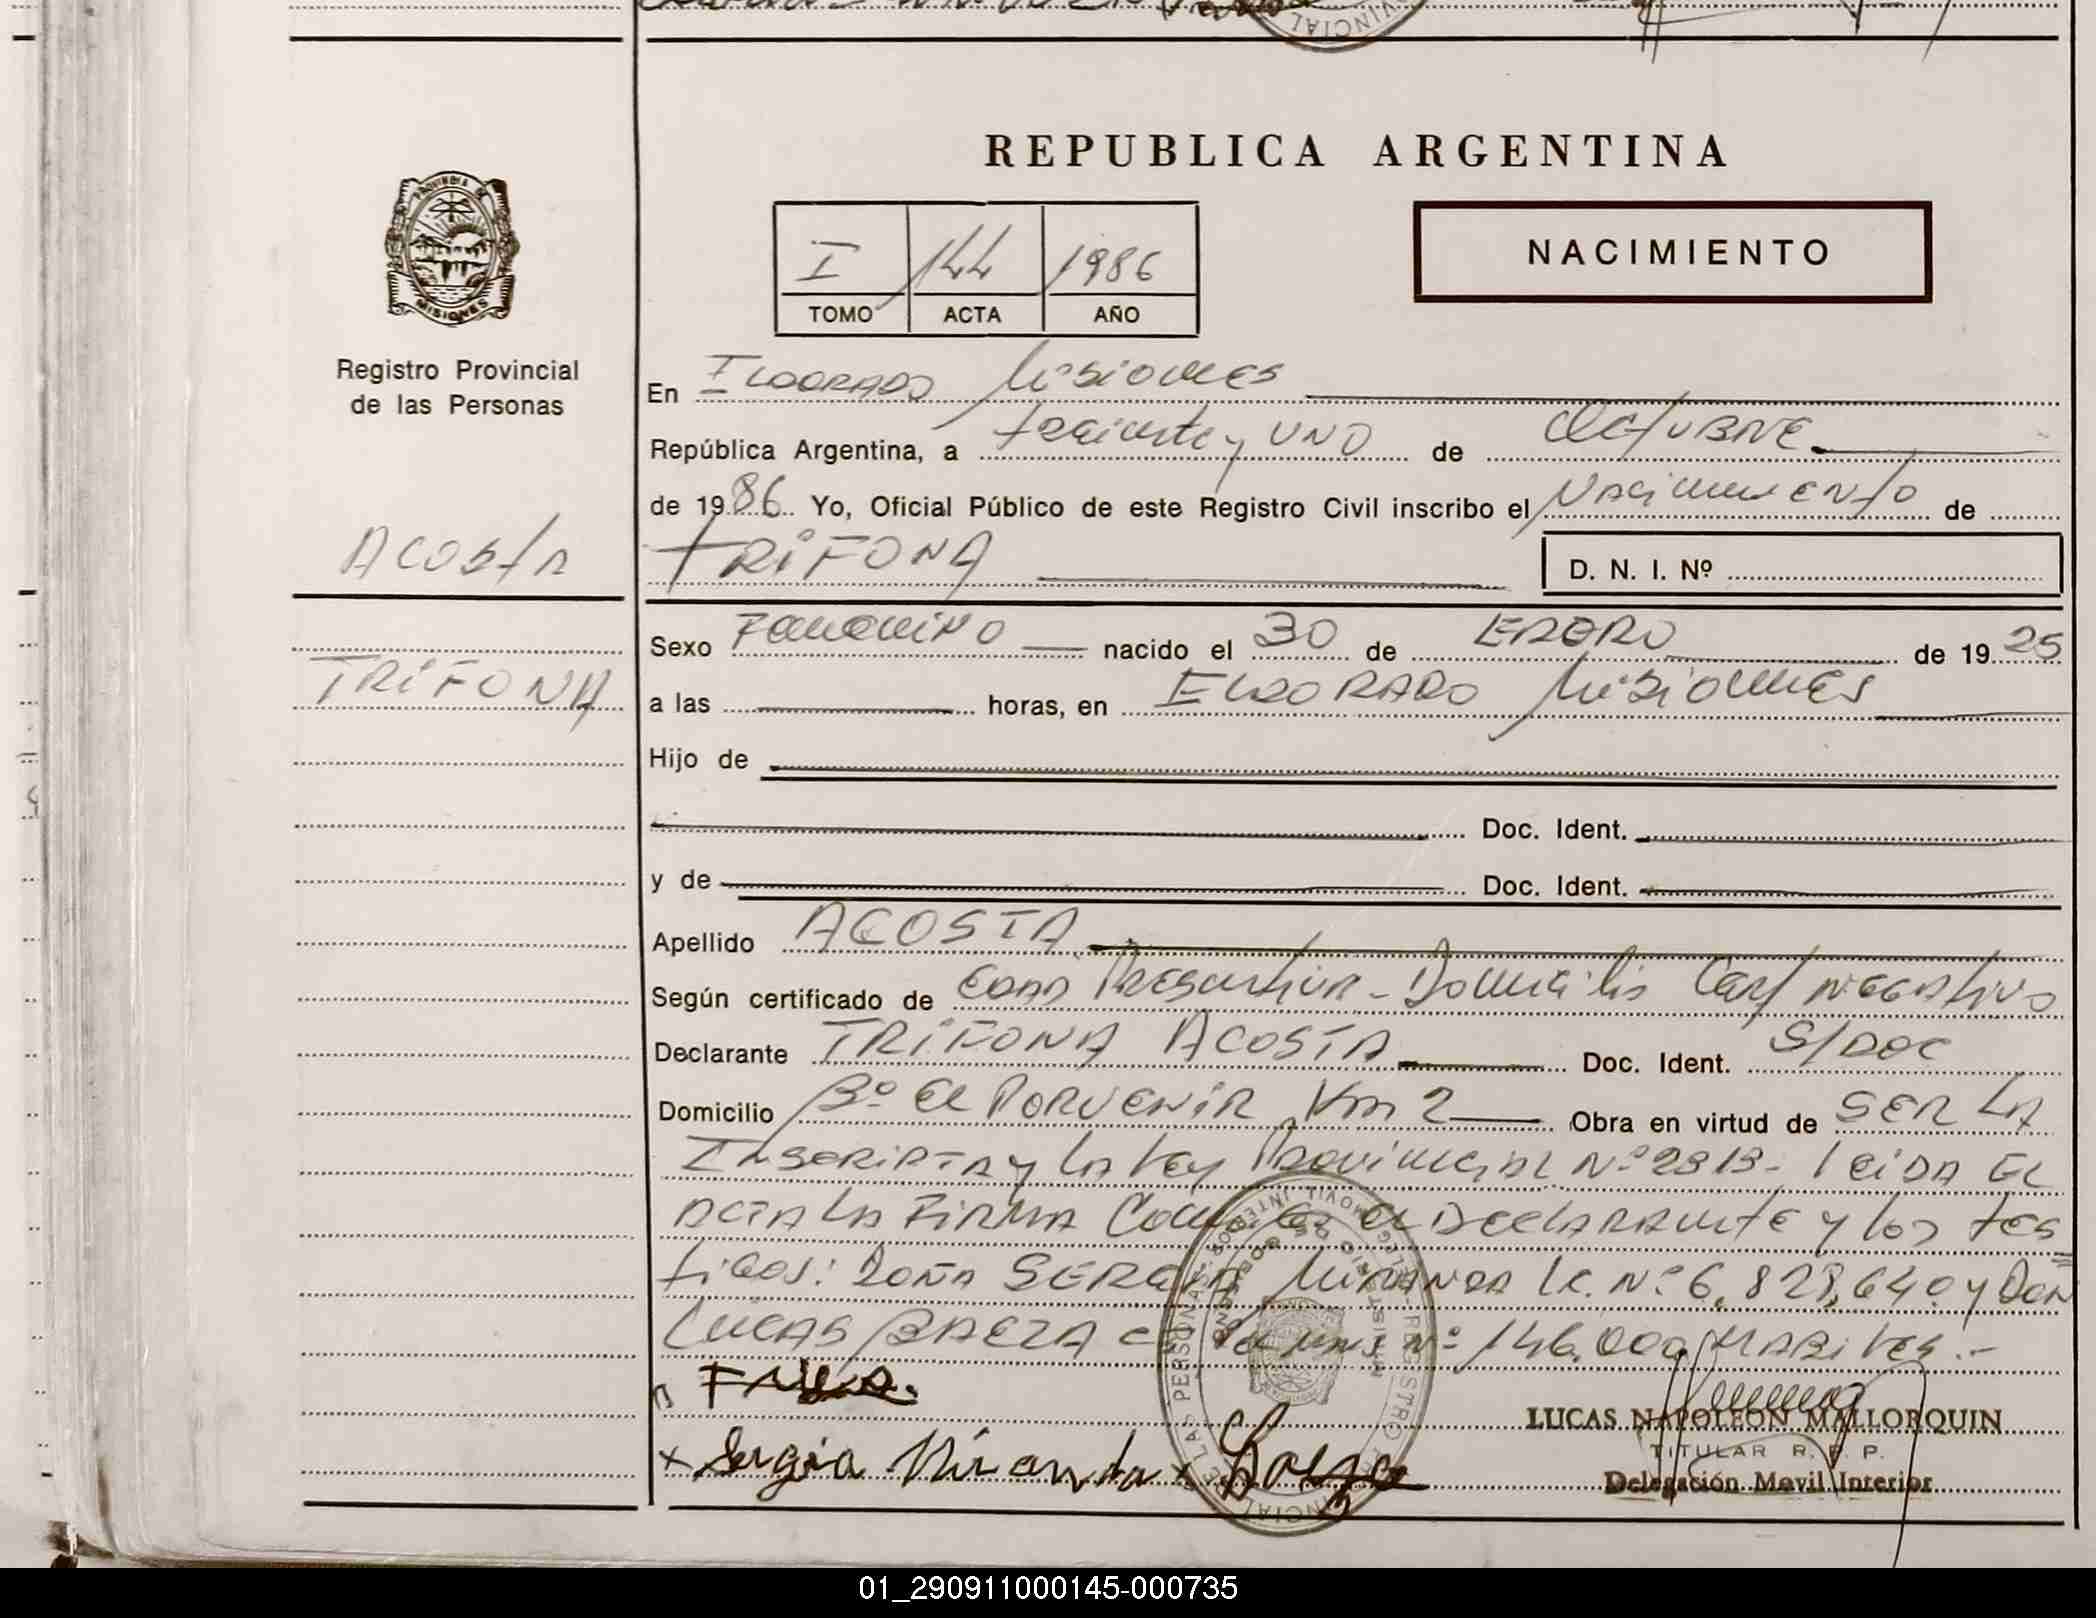 REPUBLICA ARGENTINA
PROVINCIA DE
MISIONES
I 144 1986
TOMO ACTA AÑO
NACIMIENTO
Registro Provincial
de las Personas
En Eldorado Misiones
República Argentina, a treinta y UNO de OCtUBRE
de 1986 Yo, Oficial Público de este Registro Civil inscribo el Nacimiento de
ACOStA
TRIFONA
D. N. I. Nº
TRIFONA
Sexo Femenino nacido el 30 de ENERO de 1925
a las horas, en ELDORADO Misiones
Hijo de
Doc. Ident.
y de Doc. Ident.
Apellido ACOSTA
Según certificado de EDAD Presuntiva - Domicilio Cert NEGAtivo
Declarante TRIFONA ACOSTA Doc. Ident. S/DOC
Domicilio Bº El PORVENIR Km 2 Obra en virtud de SER LA
INSCRIPTA y LA Ley Provincial Nº 2813- leiDA EL
ACTA LA FIRMA el DeclARAnte y los tes
tigos: DOÑA SERGIA MIRANDA LC. Nº 6.828.640 y DON
LUCAS BAEZA Nº 146.000
Sergia Miranda x
LUCAS NAPOLEON MALLORQUIN
TITULAR R. P. P.
Delegación Movil Interior
01_290911000145-000735